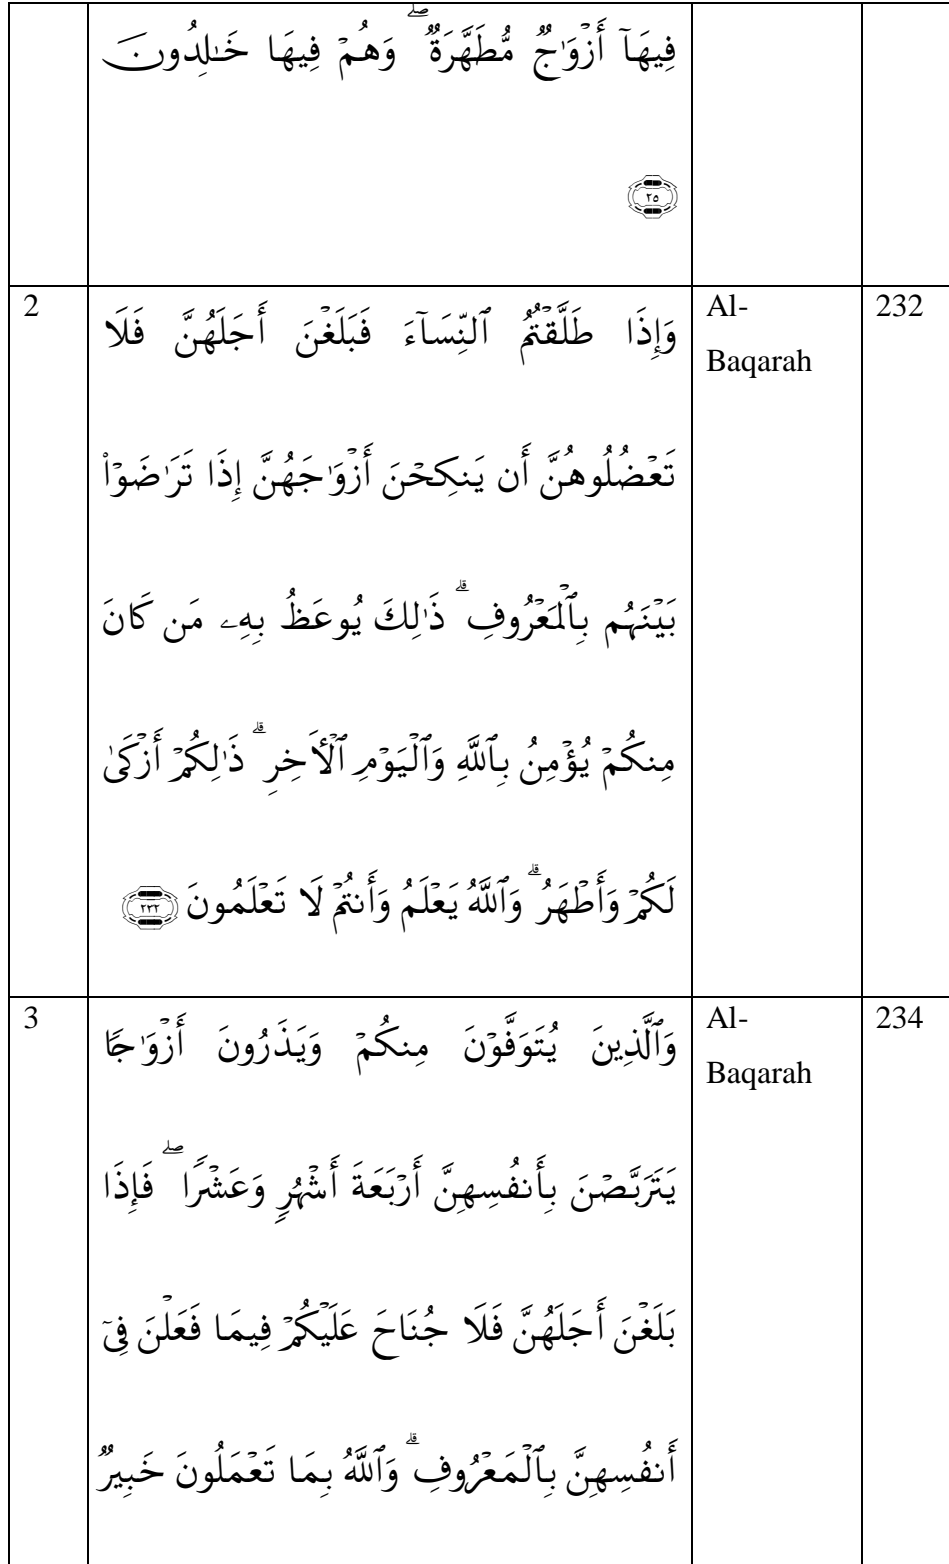 فِيهَآ أَزۡوَٰجٞ مُّطَهَّرَةٞۖ وَهُمۡ فِيهَا خَٰلِدُونَ
٢٥
2
وَإِذَا طَلَّقۡتُمُ ٱلنِّسَآءَ فَبَلَغۡنَ أَجَلَهُنَّ فَلَا
Al-
232
Baqarah
تَعۡضُلُوهُنَّ أَن يَنكِحۡنَ أَزۡوَٰجَهُنَّ إِذَا تَرَٰضَوۡاْ
بَيۡنَهُم بِٱلۡمَعۡرُوفِۗ ذَٰلِكَ يُوعَظُ بِهِۦ مَن كَانَ
مِنكُمۡ يُؤۡمِنُ بِٱللَّهِ وَٱلۡيَوۡمِ ٱلۡأٓخِرِۗ ذَٰلِكُمۡ أَزۡكَىٰ
لَكُمۡ وَأَطۡهَرُۚ وَٱللَّهُ يَعۡلَمُ وَأَنتُمۡ لَا تَعۡلَمُونَ ٢٣٢
3
وَٱلَّذِينَ يُتَوَفَّوۡنَ مِنكُمۡ وَيَذَرُونَ أَزۡوَٰجٗا
Al-
234
Baqarah
يَتَرَبَّصۡنَ بِأَنفُسِهِنَّ أَرۡبَعَةَ أَشۡهُرٖ وَعَشۡرٗاۖ فَإِذَا
بَلَغۡنَ أَجَلَهُنَّ فَلَا جُنَاحَ عَلَيۡكُمۡ فِيمَا فَعَلۡنَ فِيٓ
أَنفُسِهِنَّ بِٱلۡمَعۡرُوفِۗ وَٱللَّهُ بِمَا تَعۡمَلُونَ خَبِيرٞ